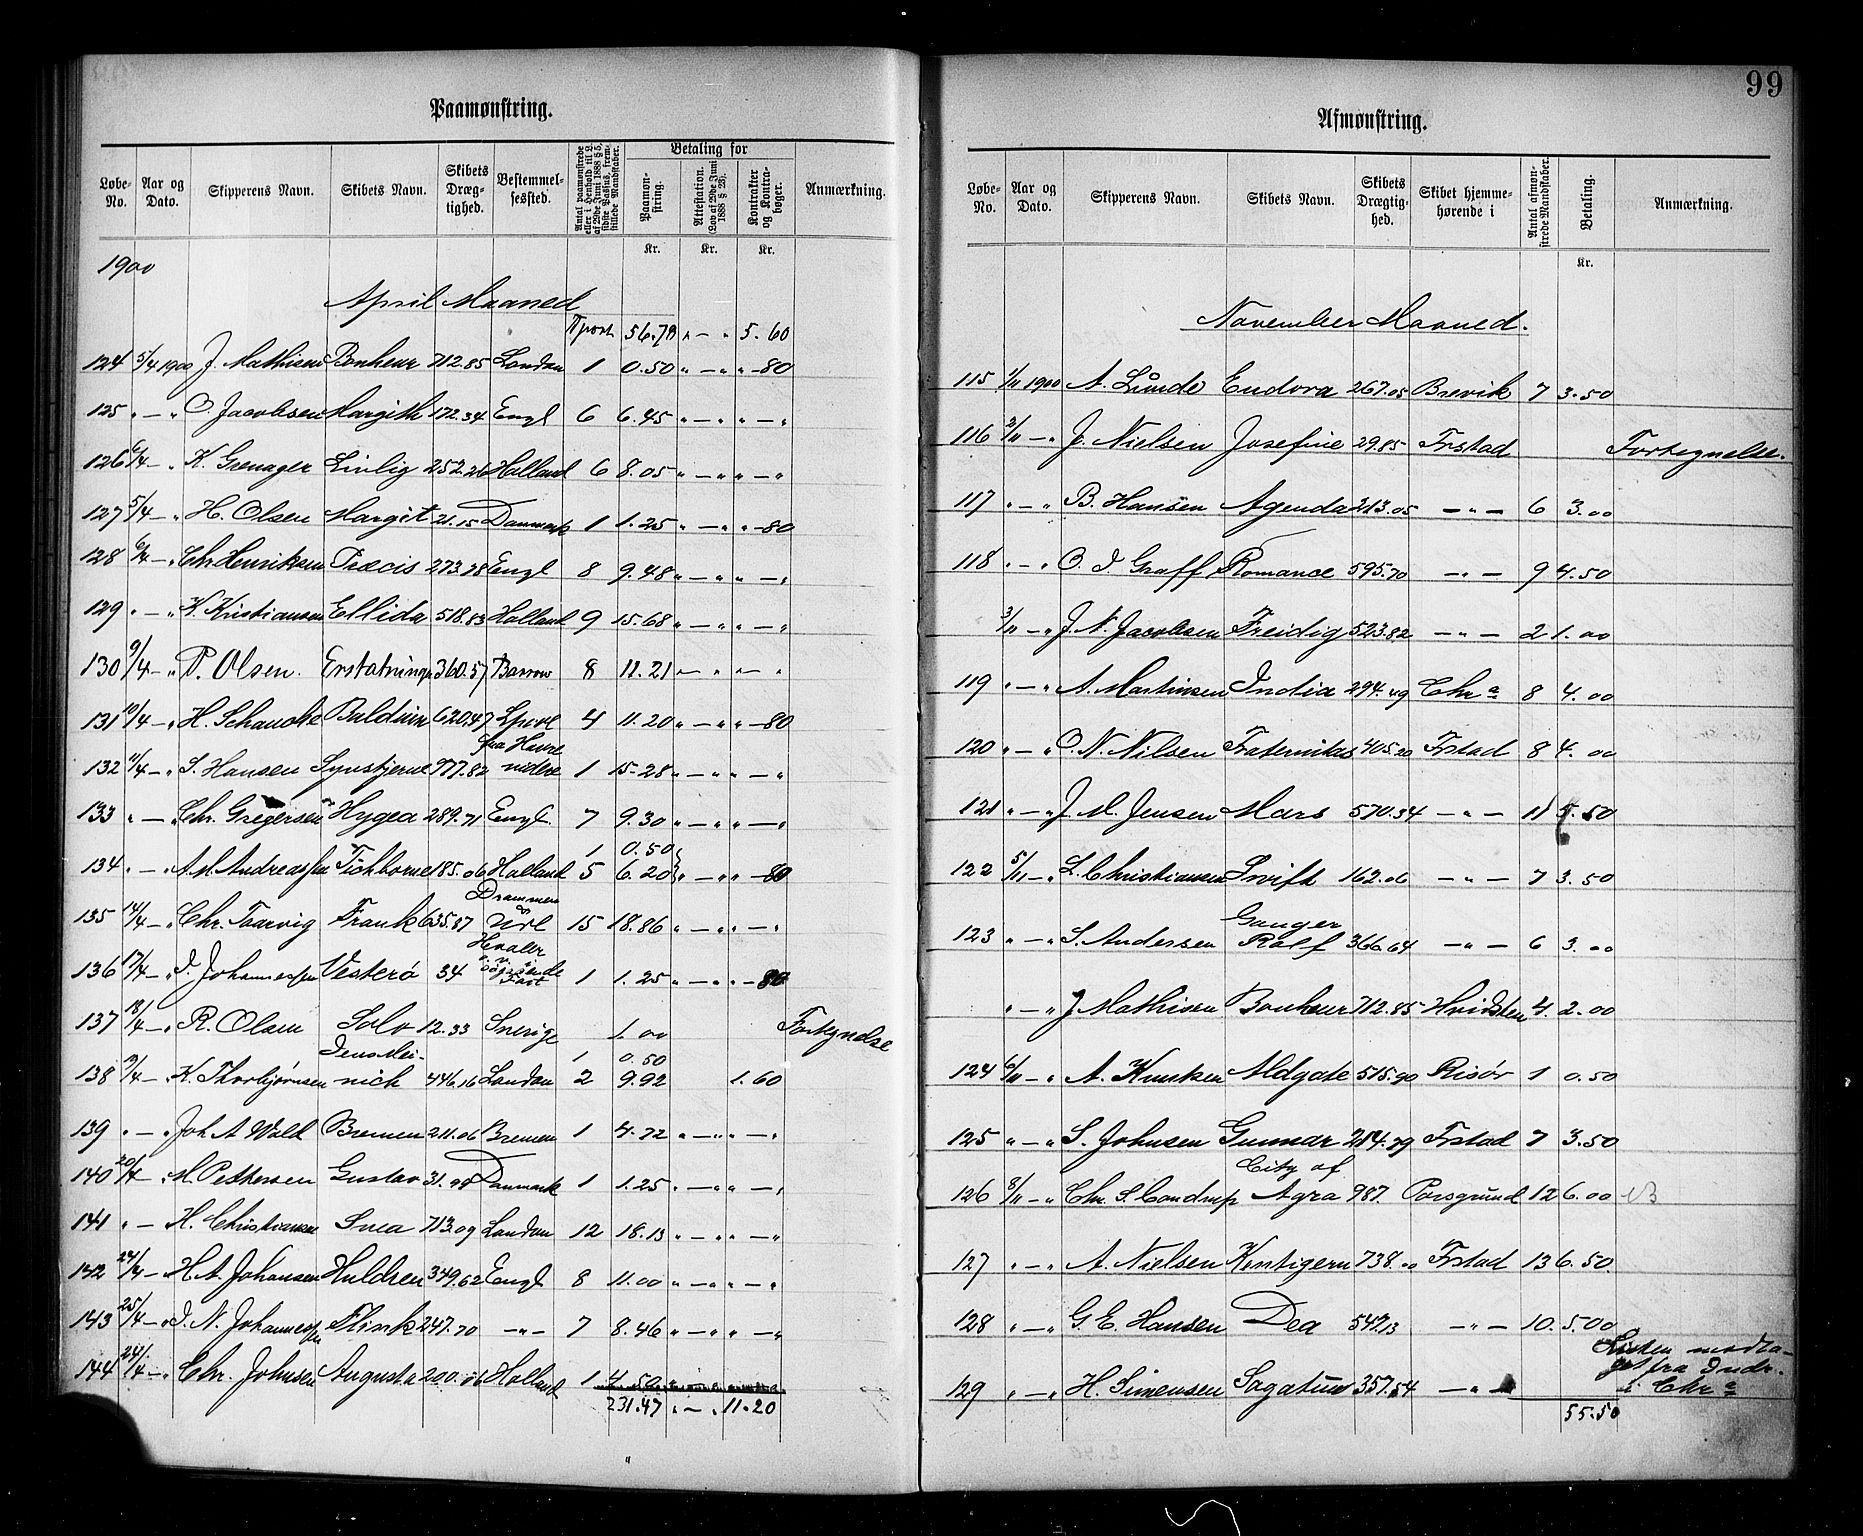 99
Paamønstring.
Løbe-No. Aar og Dato. Skipperens Navn. Skibets Navn. Skibets Dræg-tighed. Bestemmel-sessted. Antal paamønstrede eller i Henhold til L. af 29de Juni 1888 § 5, sidste Passus, frem-stillede Mandskaber. Betaling for Paamøn-string. Attestation. (Lov af 29de Juni 1888 § 28). Kontrakter og Kontra-bøger. Anmærkning.
Kr. Kr. Kr.
1900
April Maaned
Tpost 56.78 " — " 5.60
124 5/4 1900 J. Mathisen Bonheur 712.85 London 1 0.50 " — " " —80
125 " — " O. Jacobsen Margith 172.34 Engl 6 6.45 " — " " — "
126 6/4 — " K. Grenager Livlig 252.26 Holland 6 8.05 " — " " — "
127 5/4 — " H. Olsen Margit 21.15 Danmark 1 1.25 " — " " —80
128 6/4 — " Chr Henriksen Præcis 273.78 Engl 8 9.48 " — " " — "
129 " — " K. Kristiansen Ellida 518.83 Holland 9 15.68 " — " " — "
130 9/4 — " P. Olsen. Erstatningen 360.57 Barrow 8 11.21 " — " " — "
131 10/4 — " H. Schanche Baldwin 620.47 Lpool 4 11.20 " — " " —80
fra Havre
132 11/4 — " S. Hansen Synstjerne 777.82 videre 1 15.28 " — " " — "
133 " — " Chr. Gregersen Hygea 289.71 Engl. 7 9.30 " — " " — "
1 0.50
134 " — " A. M. Andreassen Tichborne 185.06 Holland 5 6.20 " — " " —80
Drammen
135 14/4 — " Chr. Taarvig Frank 635.87 15 18.86 " — " " — "
Hvaler
136 17/4 — " J. Johannessen Vesterø 34 1 1.25 " — " " —80
137 18/4 — " R. Olsen Solv 12.33 Sverige 1.00 Fortegnelse
1 0.50
138 9/4 — " K. Thorbjørnsen nich 446.16 London 2 9.92 1.60
139 " — " Joh A Wold Bremen 211.06 Bremen 1 4.72 " — " " — "
140 20/4 — " M. Pettersen Gustav 31.99 Danmark 1 1.25 " — " " — "
141 " — H. Christiansen Svea 713.09 London 12 18.13 " — " " — "
142 24/4 — H. A. Johansen Huldren 349.62 Engl 8 11.00 " — " " — "
143 25/4 — " J. N. Johannessen Flink 247.70 — " — 7 8.46 " — " " — "
144 24/4 — " Chr. Johnsen Augusta 200.06 Holland 1 4.50
231.47 " — " 11.20
Afmønstring.
Løbe-No. Aar og Dato. Skipperens Navn. Skibets Navn. Skibets Drægtig-hed. Skibet hjemme-hørende i Antal afmøn-strede Mandskaber. Betaling. Anmærkning.
Kr.
November Maaned.
115 1/11 1900 A. Lunde Eudora 267.05 Brevik 7 3.50
116 2/11 — " J. Nielsen Josefine 29.85 Frstad Fortegnelse.
117 " — " B. Hansen Agenda 213.05 — " — 6 3.00
118 " — " O. J. Graff Romance 595.70 — " — 9 4.50
3/11 — " J. N. Jacobsen Freidig 523.82 — " — 2 1.00
119 " — " A. Martinsen India 294.49 Chra 8 4.00
120 " — " O. N. Nilsen Fraternitas 405.20 Frstad 8 4.00
121 " — " J. M. Jensen Mars 570.34 — " — 11 5.50
122 5/11 — " L. Christiansen Swift 162.06 — " — 7 3.50
Ganger
123 " — " S. Andersen Rolf 366.64 — " — 6 3.00
" — " J Mathisen Bonheur 712.85 Hvidsten 4. 2.00
124 6/11 — " A. Knutsen Aldgate 515.90 Risør 1 0.50
125 " — " S. Johnsen Gunnar 214.79 Frstad 7 3.50
City of
126 8/11 — " Chr. S. Condrup Agra 987. Porsgrund 12 6.00
127 " — " A. Nielsen Kentigern 738.00 Frstad 13 6.50
128 " — " G. E. Hansen Dea 547.13 — " — 10. 5.00
Listen modta-
get fra Indr.
129 " — " H. Simensen Sagatun 357.54 — " — i Chra
55.50